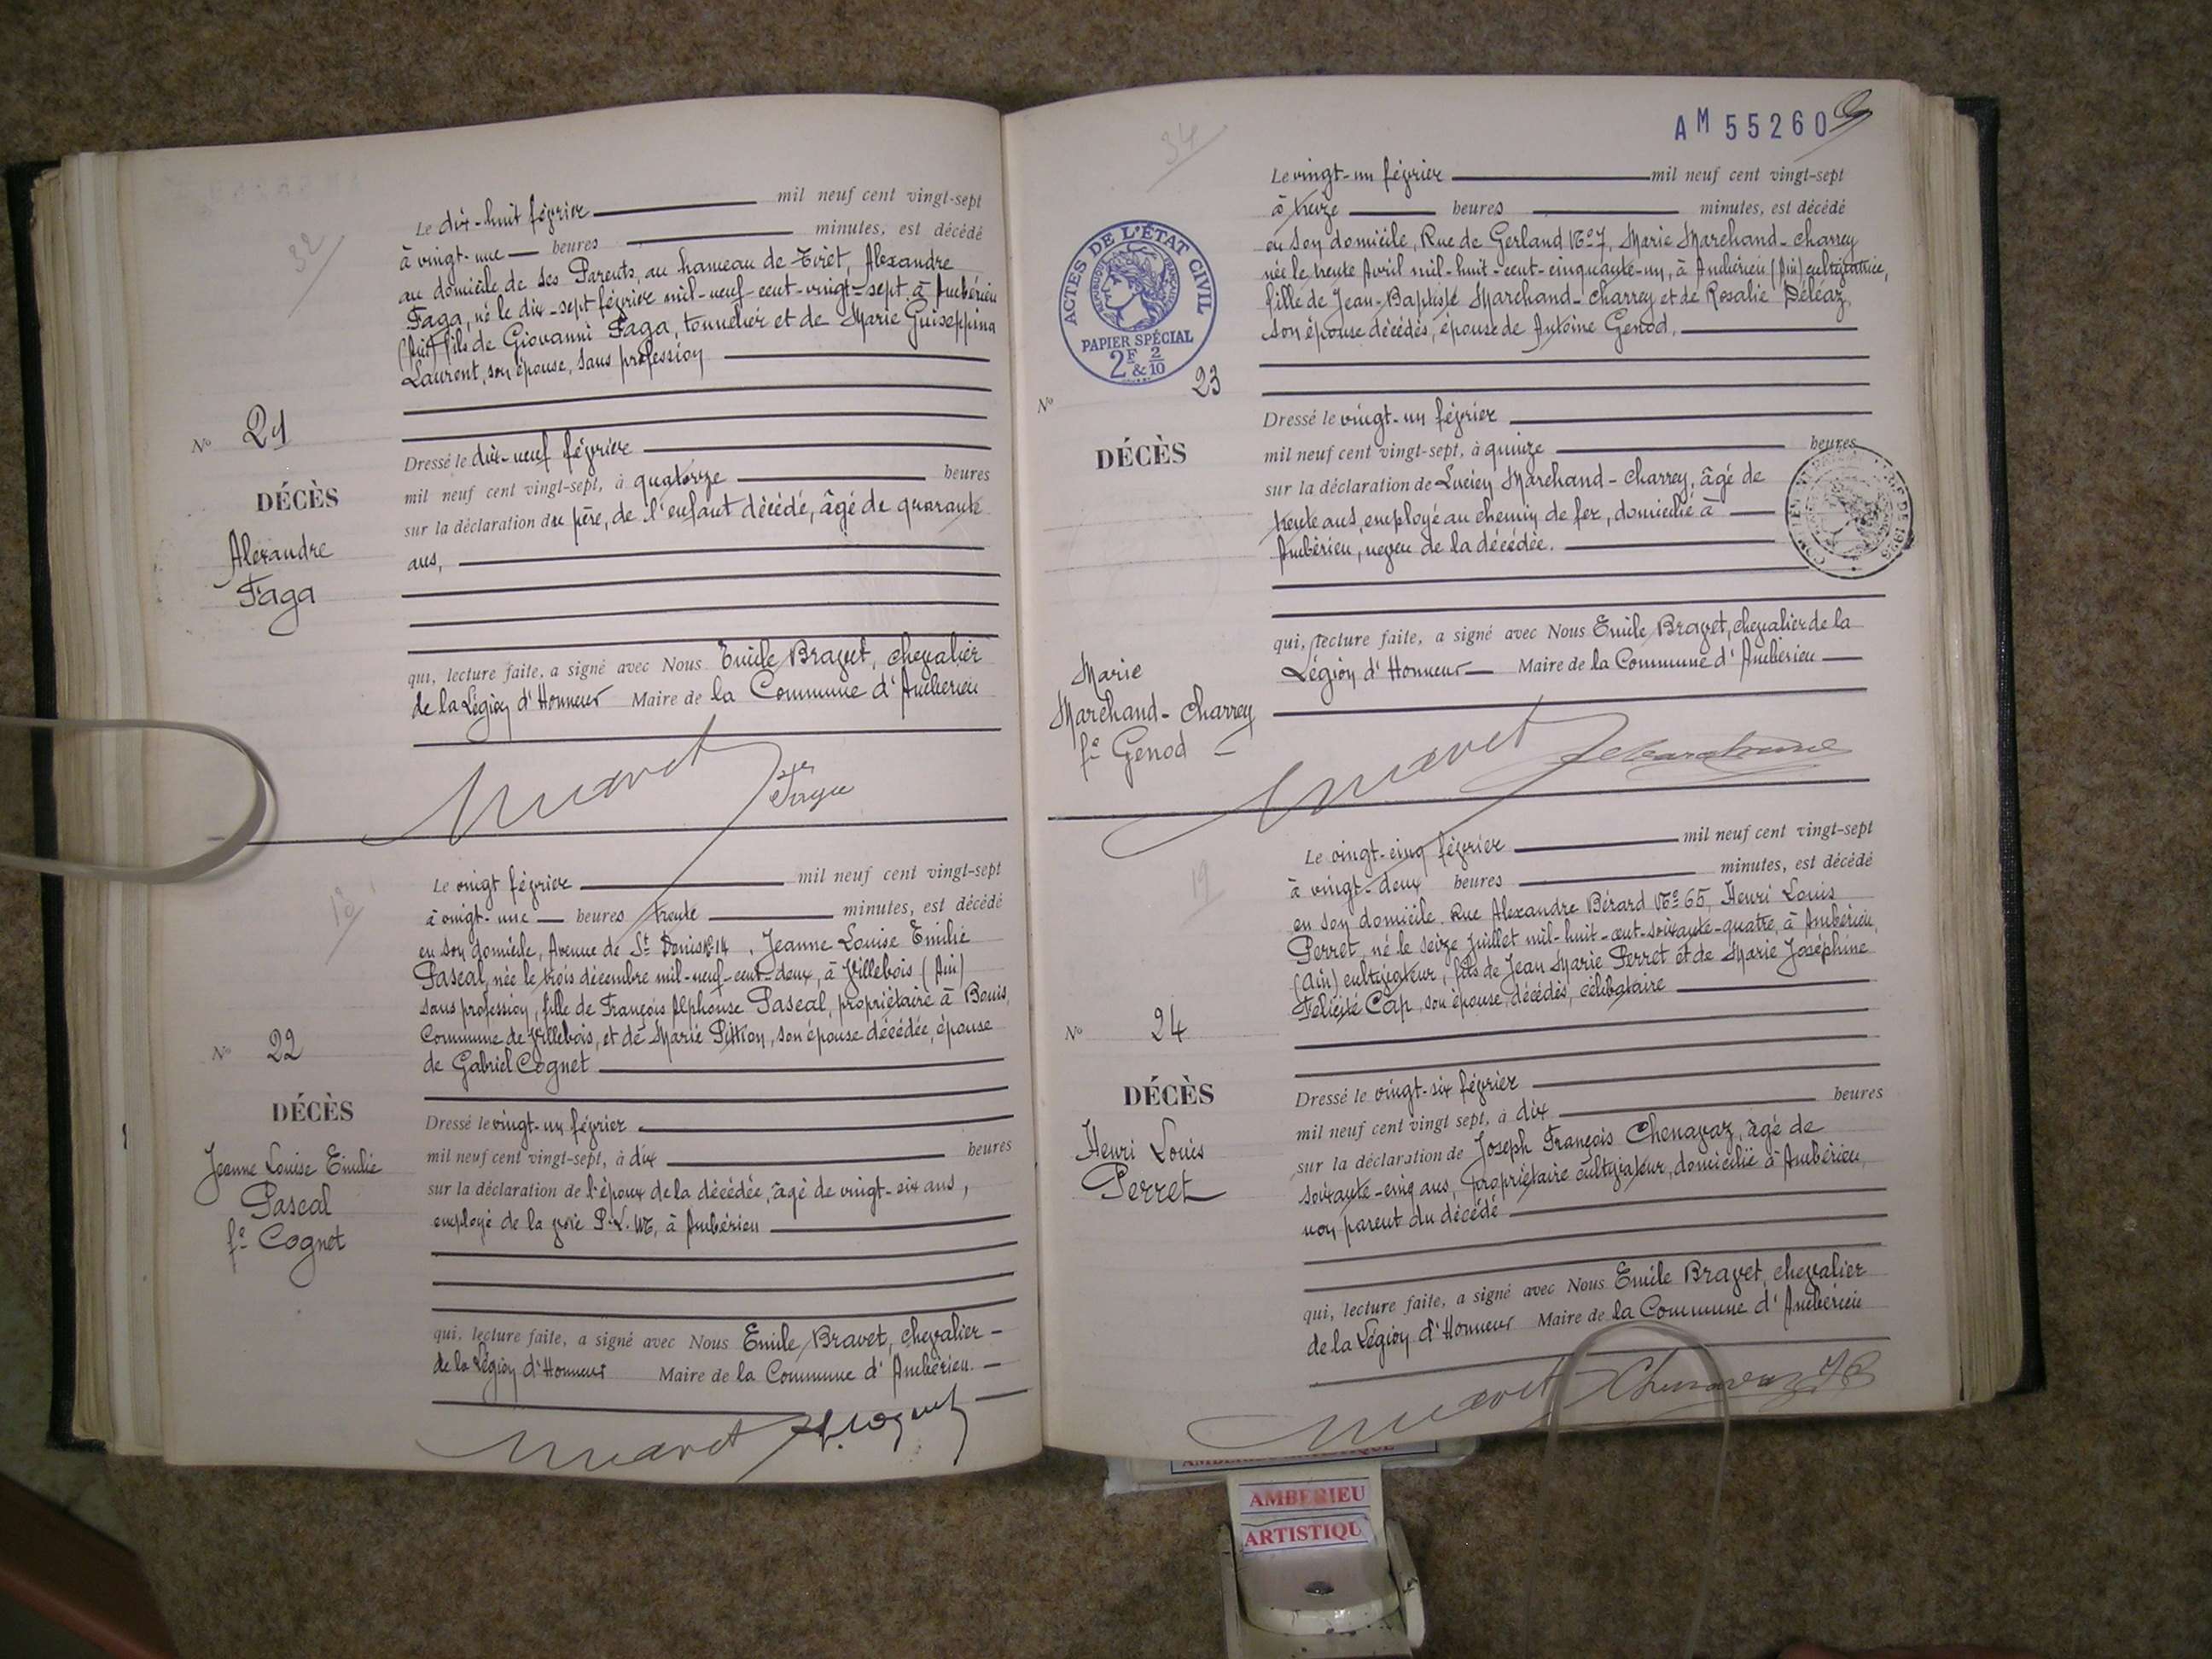 32
Le dix-huit février mil neuf cent vingt-sept
à vingt-une heures minutes, est décédé
au domicile de ses Parents, au hameau de Tiret, Alexandre
Faga, né le dix-sept février mil-neuf-cent-vingt-sept à Ambérieu
(Ain) fils de Giovanni Faga, tonnelier et de Marie Guiseppina
Laurent, son épouse, sans profession
No 21
DÉCÈS
Alexandre
Faga
Dressé le dix-neuf février
mil neuf cent vingt-sept, à quatorze heures
sur la déclaration du père, de l'enfant décédé, âgé de quarante
ans,
qui, lecture faite, a signé avec Nous Emile Bravet, chevalier
de la Légion d'Honneur Maire de la Commune d'Ambérieu
Bravet
Le vingt février mil neuf cent vingt-sept
à vingt-une heures trente minutes, est décédé
en son domicile, Avenue de St Denis No 14, Jeanne Louise Emilie
Pascal, née le trois décembre mil-neuf-cent-deux, à Villebois (Ain)
sans profession, fille de François Alphonse Pascal, propriétaire à Bouis,
Commune de Villebois, et de Marie Pittion, son épouse décédée, épouse
de Gabriel Cognet
No 22
DÉCÈS
Jeanne Louise Emilie
Pascal
fe Cognet
Dressé le vingt-un février
mil neuf cent vingt-sept, à dix heures
sur la déclaration de l'époux de la décédée, âgé de vingt-six ans,
employé de la voie P.L.M, à Ambérieu
qui, lecture faite, a signé avec Nous Emile Bravet, chevalier
de la Légion d'Honneur Maire de la Commune d'Ambérieu.
Bravet G. Cognet
AM 55260
34
ACTES DE L'ÉTAT CIVIL
PAPIER SPÉCIAL
2F & 2/10
Le vingt-un février mil neuf cent vingt-sept
à treize heures minutes, est décédé
en son domicile, Rue de Gerland No 7, Marie Marchand-Charrey
née le trente Avril mil-huit-cent-cinquante-un, à Ambérieu (Ain) cultivatrice,
fille de Jean-Baptiste Marchand-Charrey et de Rosalie Déléaz,
son épouse décédés, épouse de Antoine Genod.
No 23
DÉCÈS
Marie
Marchand-Charrey
fe Genod
Dressé le vingt-un février
mil neuf cent vingt-sept, à quinze heures
sur la déclaration de Lucien Marchand-Charrey, âgé de
trente ans, employé au chemin de fer, domicilié à
Ambérieu, neveu de la décédée.
qui, lecture faite, a signé avec Nous Emile Bravet, chevalier de la
Légion d'Honneur Maire de la Commune d'Ambérieu
Bravet
19
Le vingt-cinq février mil neuf cent vingt-sept
à vingt-deux heures minutes, est décédé
en son domicile Rue Alexandre Bérard No 65, Henri Louis
Perret, né le seize juillet mil-huit-cent-soixante-quatre, à Ambérieu,
(Ain) cultivateur, fils de Jean Marie Perret et de Marie Joséphine
Félicité Cap, son épouse, décédés, célibataire
No 24
DÉCÈS
Henri Louis
Perret
Dressé le vingt-six février
mil neuf cent vingt sept, à dix heures
sur la déclaration de Joseph François Chenavaz, âgé de
soixante-cinq ans, propriétaire cultivateur, domicilié à Ambérieu,
non parent du décédé
qui, lecture faite, a signé avec Nous Emile Bravet, chevalier
de la Légion d'Honneur Maire de la Commune d'Ambérieu
Bravet Chenavaz
AMBERIEU
ARTISTIQU